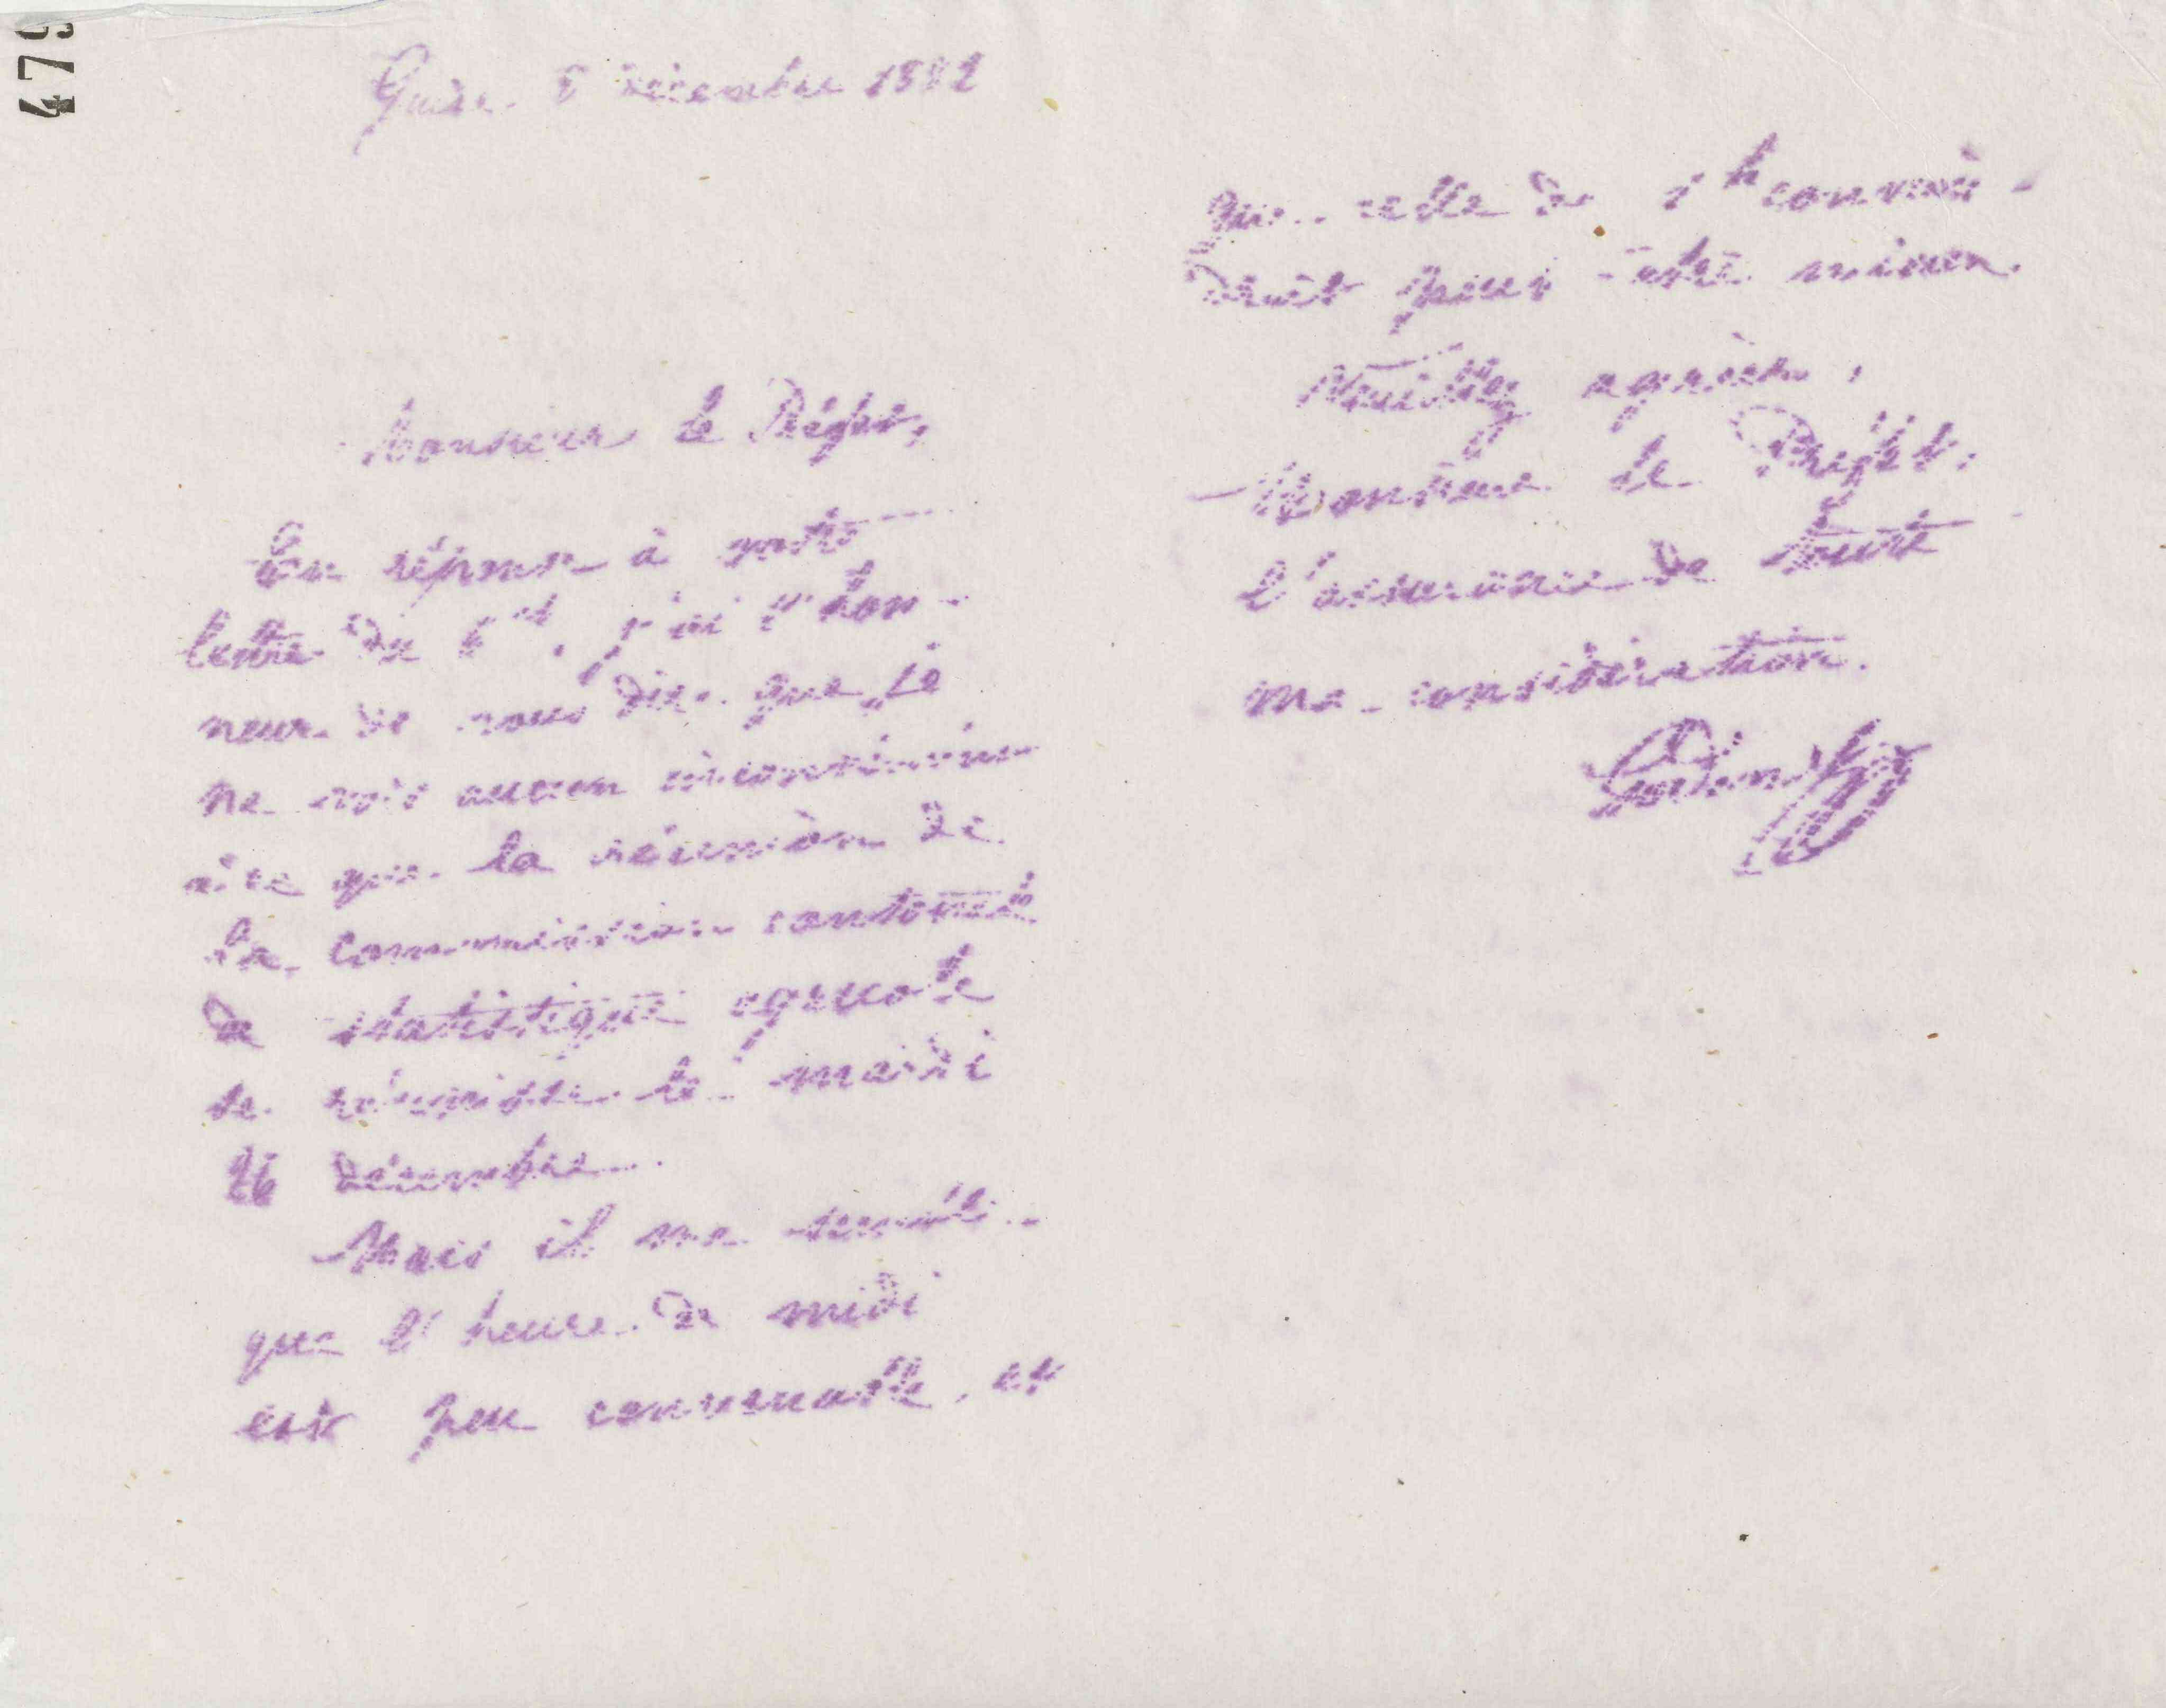 479
Guise 8 décembre 1882
Monsieur le Préfet,
En réponse à votre
lettre du 6 ct, j'ai l'hon-
neur de vous dire que je
ne vois aucun inconvénient
à ce que la réunion de
la commission cantonale
de statistique agricole
se réunisse le mardi
26 décembre.
Mais il me semble
que l'heure de midi
est peu convenable, et
que celle de 1 h convien-
drait peut-être mieux.
Veuillez agréer,
Monsieur le Préfet,
l'assurance de toute
ma considération.
Godin